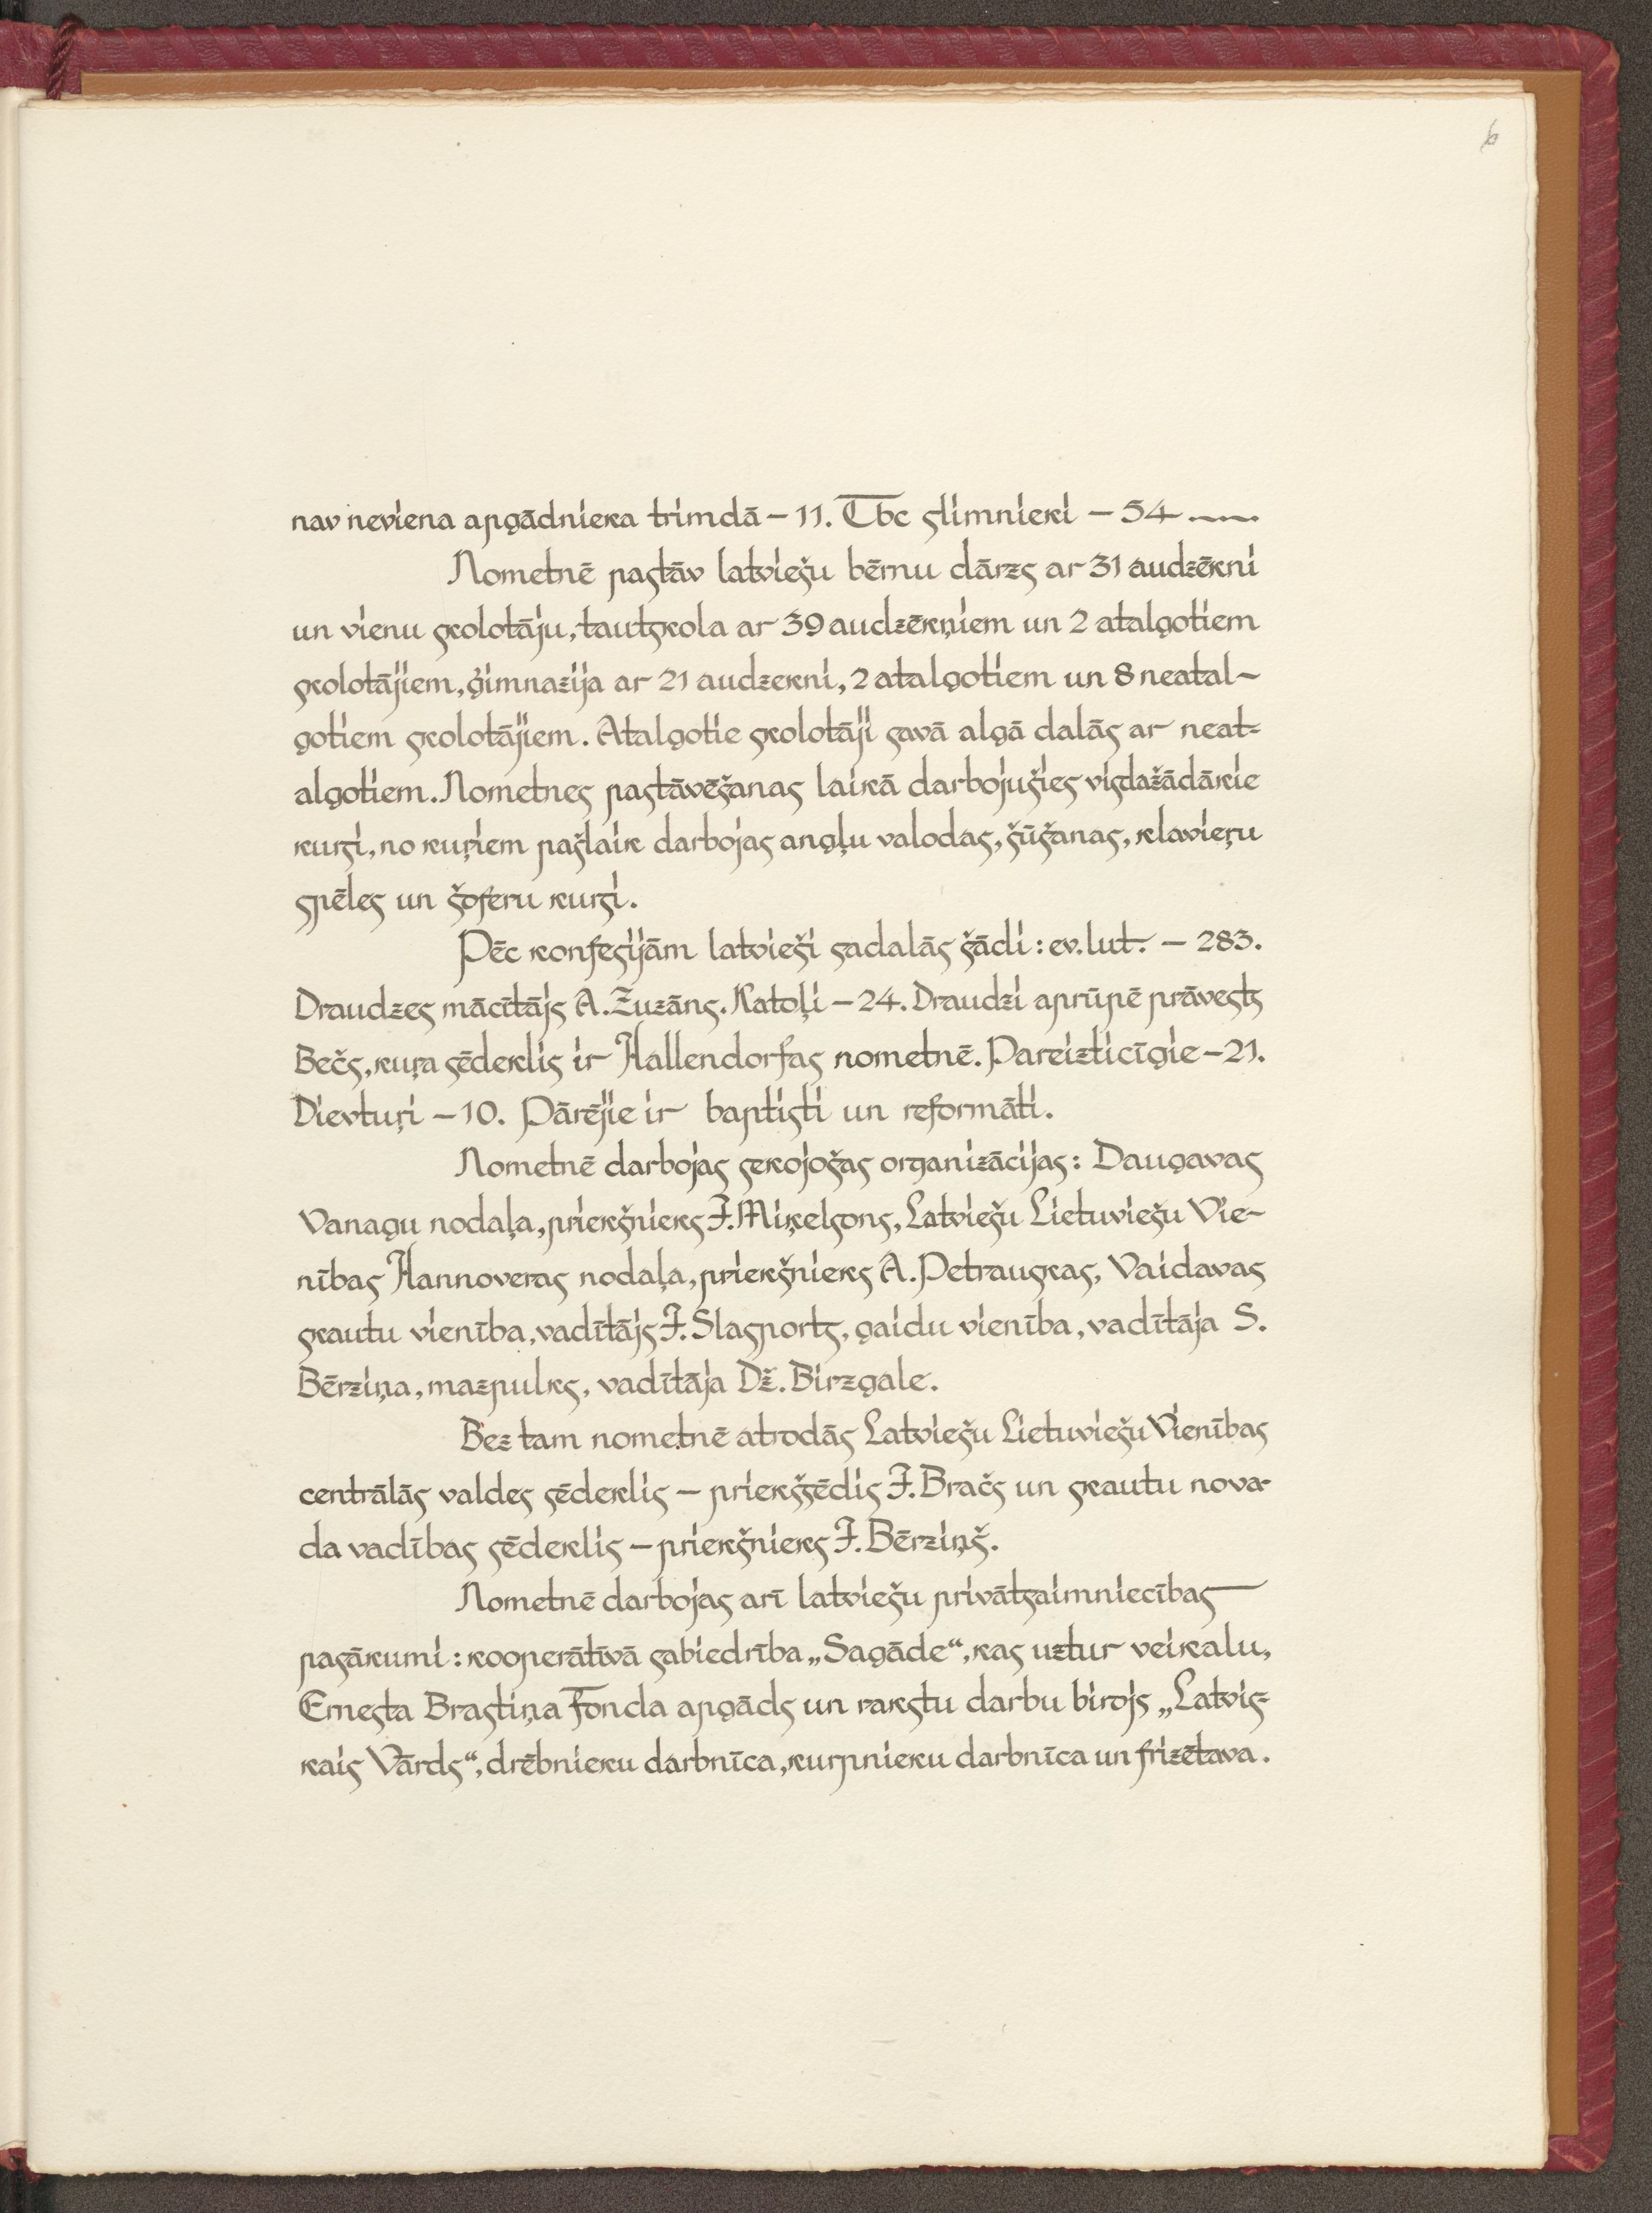 6
nav neviena apgādnieka trimdā – 11. Tbc slimnieki – 54
Nometnē pastāv latviešu bērnu dārzs ar 31 audzēkni
un vienu skolotāju, tautskola ar 39 audzēkņiem un 2 atalgotiem
skolotājiem, ģimnazija ar 21 audzekni, 2 atalgotiem un 8 neatal-
gotiem skolotājiem. Atalgotie skolotāji savā algā dalās ar neat-
algotiem. Nometnes pastāvēšanas laikā darbojušies visdažādākie
kursi, no kuŗiem pašlaik darbojas angļu valodas, šūšanas, klavieŗu
spēles un šoferu kursi.
Pēc konfesijām latvieši sadalās šādi: ev. lut. – 283.
Draudzes mācītājs A. Zuzāns. Katoļi – 24. Draudzi aprūpē prāvests
Bečs, kuŗa sēdeklis ir Hallendorfas nometnē. Pareizticīgie – 21.
Dievtuŗi – 10. Pārējie ir baptisti un reformāti.
Nometnē darbojas sekojošas organizācijas: Daugavas
Vanagu nodaļa, priekšnieks J. Miķelsons, Latviešu Lietuviešu Vie-
nības Hannoveras nodaļa, priekšnieks A. Petrauskas, Vaidavas
skautu vienība, vadītājs J. Slasports, gaidu vienība, vadītāja S.
Bērziņa, mazpulks, vadītāja Dž. Birzgale.
Bez tam nometnē atrodās Latviešu Lietuviešu Vienības
centrālās valdes sēdeklis – priekšsēdis J. Bračs un skautu nova-
da vadības sēdeklis – priekšnieks J. Bērziņš.
Nometnē darbojas arī latviešu privātsaimniecības
pasākumi: kooperātīvā sabiedrība „Sagāde“, kas uztur veikalu,
Ernesta Brastiņa Fonda apgāds un rakstu darbu birojs „Latvis-
kais Vārds“, drēbnieku darbnīca, kurpnieku darbnīca un frizētava.